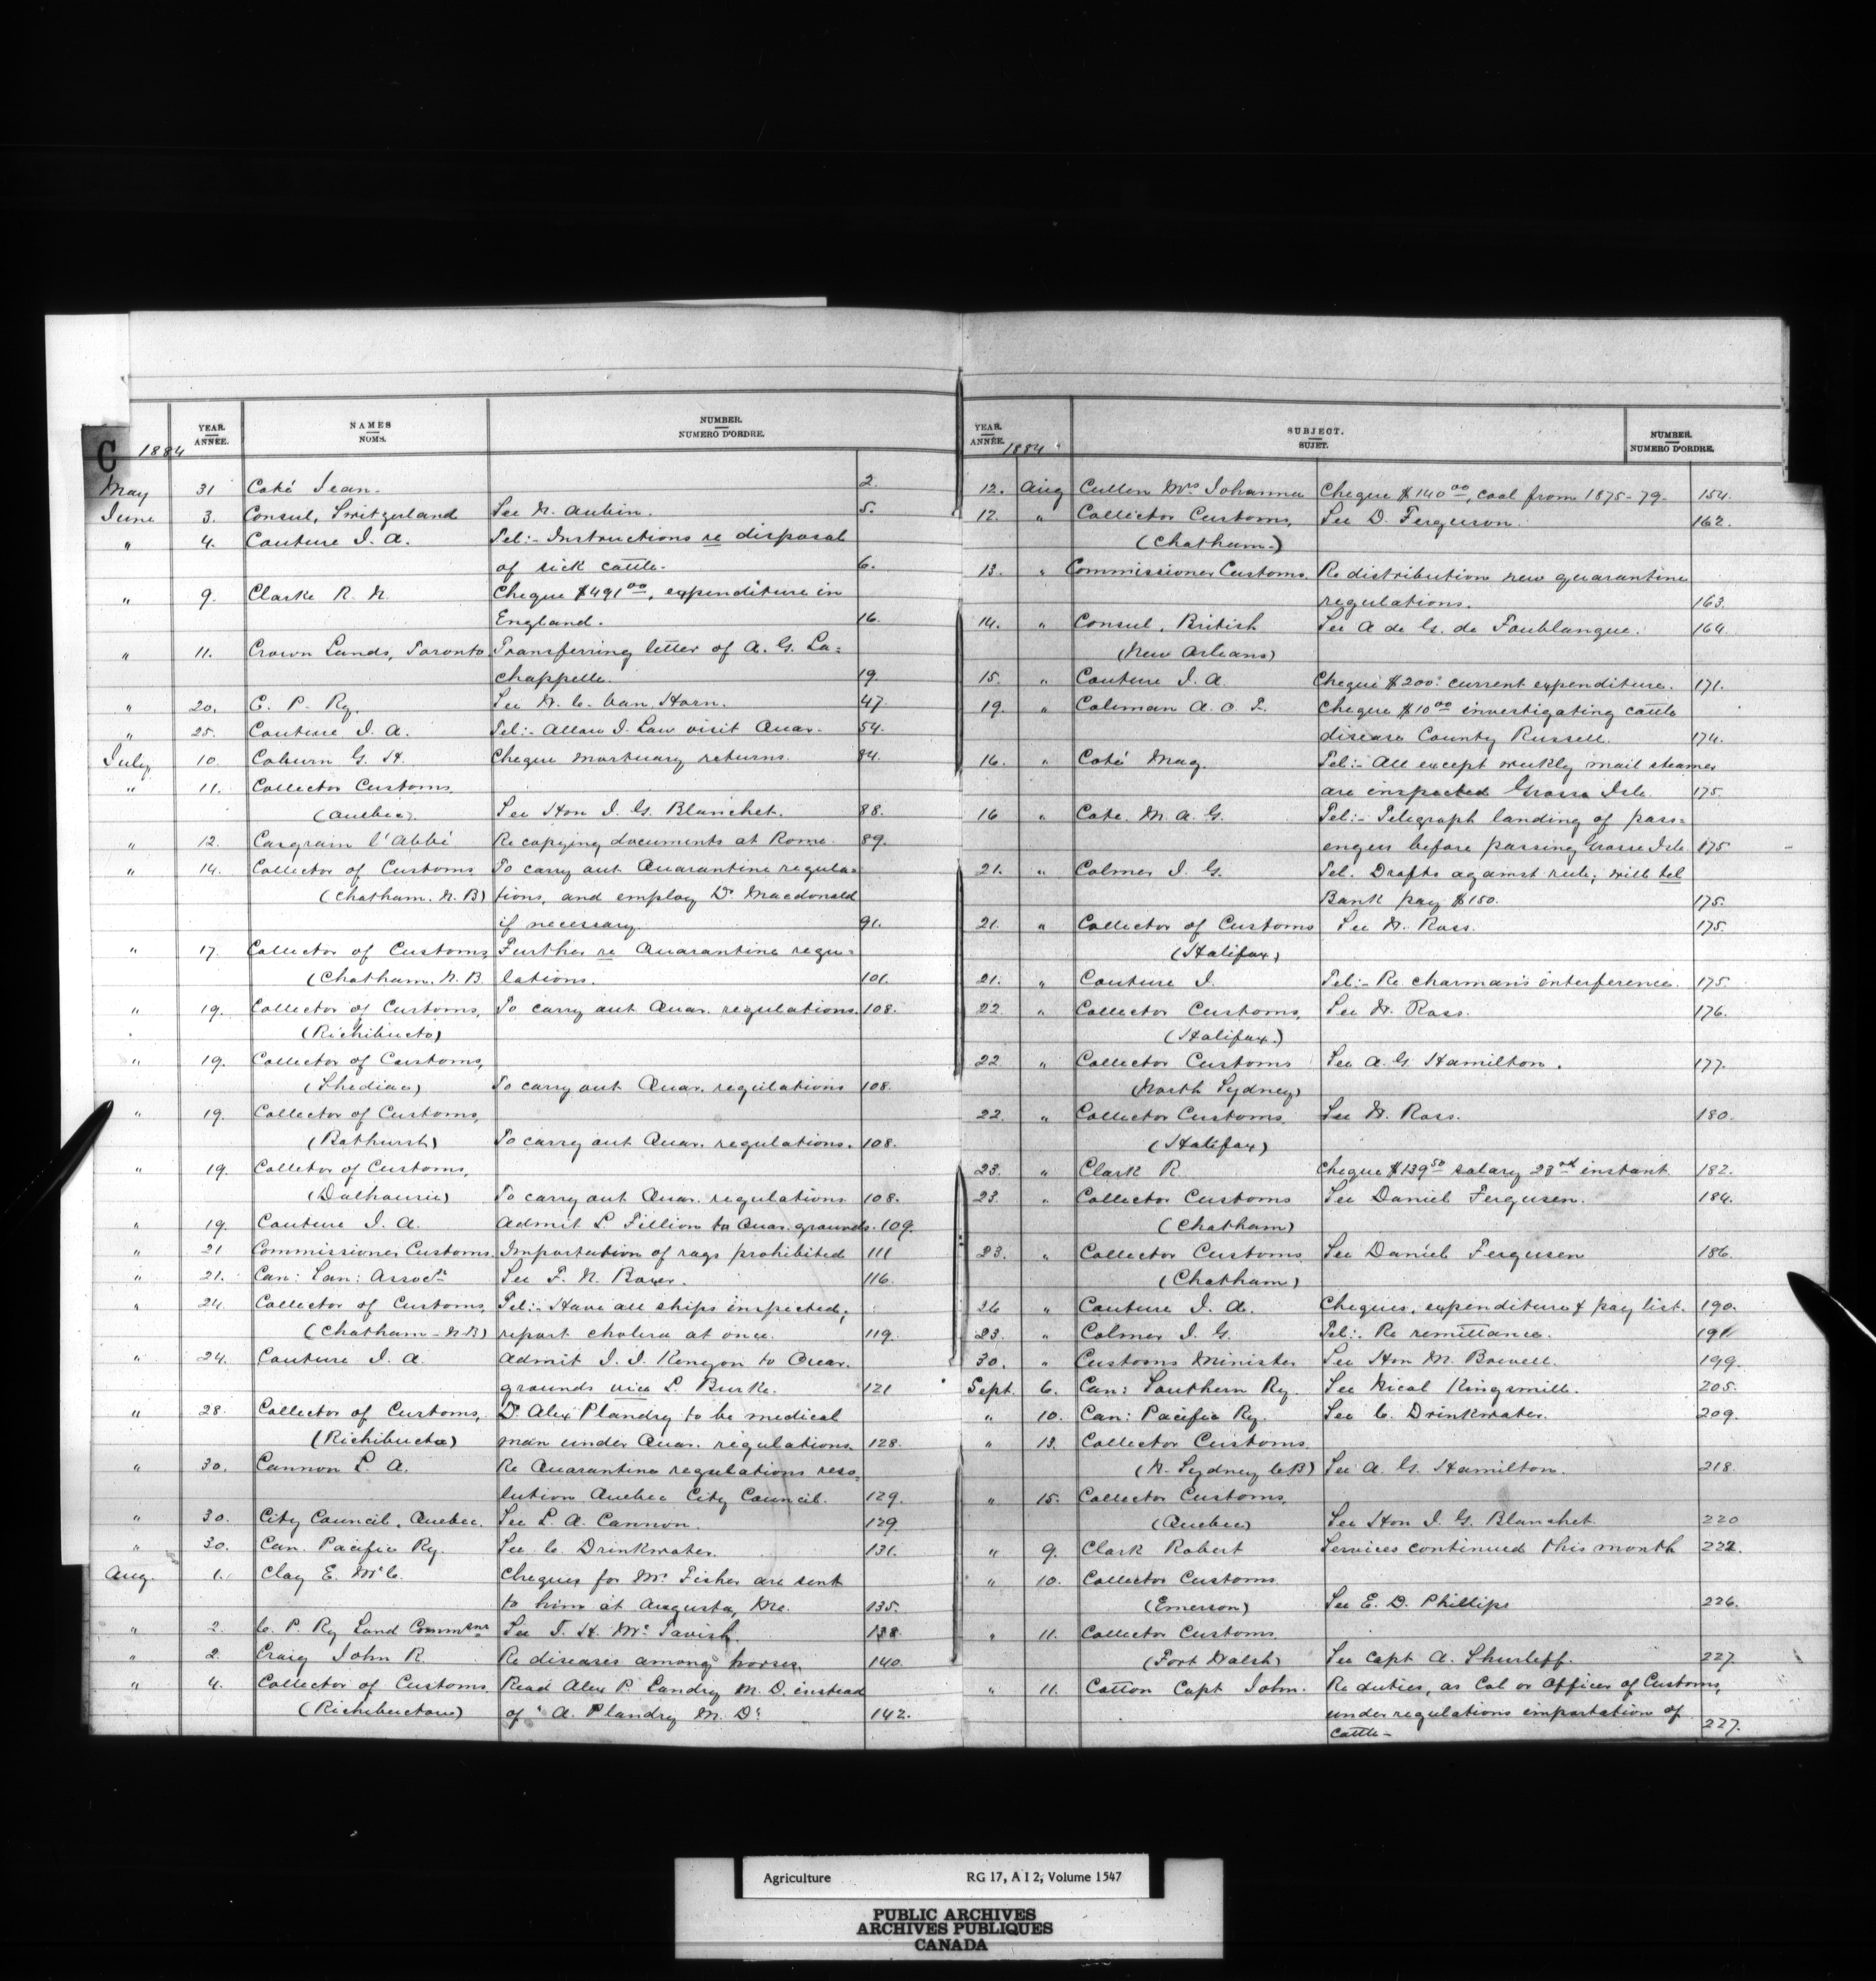 YEAR. ANNÉE. NAMES NOMS. NUMBER. NUMERO D'ORDRE.
C 1884
May 31 Coté Jean. 2.
June 3. Consul, Switzerland See N. Aubin. 5.
" 4. Couture J. A. Tel:- Instructions re disposal
of sick cattle. 6.
" 9. Clarke R. N. Cheque $491.00, expenditure in
England. 16.
" 11. Crown Lands, Toronto Transferring letter of A. G. La=
chappelle. 19.
" 20. C. P. Ry. See W. C. Van Horn. 47.
" 25. Couture J. A. Tel:- Allow J. Law visit Quar. 54.
July 10. Coburn G. H. Cheque mortuary returns. 84.
" 11. Collector Customs
(Quebec) See Hon J. G. Blanchet. 88.
" 12. Casgrain l'Abbé Re copying documents at Rome. 89.
" 14. Collector of Customs To carry out Quarantine regula=
(Chatham. N. B) tions, and employ Dr Macdonald
if necessary. 91.
" 17. Collector of Customs Further re Quarantine regu=
(Chatham. N. B. lations. 101.
" 19. Collector of Customs, To carry out Quar. regulations. 108.
(Richibucto)
" 19. Collector of Customs,
(Shediac) To carry out Quar. regulations 108.
" 19. Collector of Customs,
(Bathurst) To carry out Quar. regulations. 108.
" 19. Colletor of Customs,
(Dalhousie) To carry out Quar. regulations 108.
" 19. Couture J. A. Admit L. Fillion to Quar. grounds. 109.
" 21 Commissioner Customs. Importation of rags prohibited 111
" 21. Can: San: Assoctn See F. N. Boxer. 116.
" 24. Collector of Customs, Tel:- Have all ships inspected;
(Chatham - N. B) report cholera at once. 119.
" 24. Couture J. A. Admit J. J. Kenyon to Quar.
grounds vice L. Burke. 121
" 28. Collector of Customs, Dr Alex Plandry to be medical
(Richibucto) man under Quar. regulations. 128.
" 30. Cannon L. A. Re Quarantine regulations reso=
lution Quebec City Council. 129.
" 30. City Council, Quebec. See L. A. Cannon. 129
" 30. Can. Pacific Ry. See C. Drinkwater. 131.
Aug. 1. Clay E. McC. Cheques for Mr Fisher are sent
to him at Augusta, Me. 135.
" 2. C. P. Ry Land Commsnr See J. H. McTavish. 138.
" 2. Craig John R. Re diseases among horses. 140.
" 4. Collector of Customs. Read Alex P. Landry M. D. instead
(Richibuctou) of "A. Plandry M. D." 142.
YEAR. ANNÉE. 1884 SUBJECT. SUJET. NUMBER. NUMERO D'ORDRE.
12. Aug Cullen Mrs Johanna Cheque $140.00, coal from 1875-79. 154.
12. " Collector Customs, See D. Ferguson. 162.
(Chatham.)
13. " Commissioner Customs. Re distribution new quarantine
regulations. 163.
14. " Consul, British See A de G. de Foublanque. 164.
(New Orleans)
15. " Couture J. A. Cheque $200. current expenditure. 171.
19. " Coleman A. O. F. Cheque $10.00 investigating cattle
disease County Russell. 174.
16. " Coté Mag. Tel:- All except weekly mail steamer
are inspected Grosse Isle. 175.
16 " Cote. M. A. G. Tel:- Telegraph landing of pass=
engers before passing Grosse Isle 175
21. " Colmer J. G. Tel. Drafts against rule; will tel
Bank pay $150. 175.
21. " Collector of Customs See W. Ross. 175.
(Halifax)
21. " Couture J. Tel:- Re charman's interference. 175.
22. " Collector Customs, See W. Ross. 176.
(Halifax.)
22 " Collector Customs See A. G. Hamilton. 177.
(North Sydney)
22. " Collector Customs, See W. Ross. 180.
(Halifax)
23. " Clark R. Cheque $139.50 salary 23rd instant 182.
23. " Collector Customs See Daniel Fergusen. 184.
(Chatham)
23. " Collector Customs See Daniel Fergusen 186.
(Chatham)
26 " Couture J. A. Cheques, expenditure & pay list. 190.
23. " Colmer J. G. Tel:- Re remittance. 191
30. " Customs Minister See Hon M. Bowell. 199.
Sept. 6. Can: Southern Ry. See Nicol Kingsmill. 205.
" 10. Can: Pacific Ry. See C. Drinkwater. 209.
" 13. Collector Customs
(N. Sydney C.B) See A. G. Hamilton. 218.
" 15. Collector Customs,
(Quebec) See Hon J. G. Blanchet 220
" 9. Clark Robert Services continued this month 222.
" 10. Collector Customs
(Emerson) See E. D. Phillips 226.
" 11. Collector Customs
(Fort Walsh) See Capt A. Shurleff. 227.
" 11. Cotton Capt John. Re duties, as Col or Officer of Customs,
under regulations importation of
Cattle- 227.
Agriculture RG 17, A I 2, Volume 1547
PUBLIC ARCHIVES
ARCHIVES PUBLIQUES
CANADA